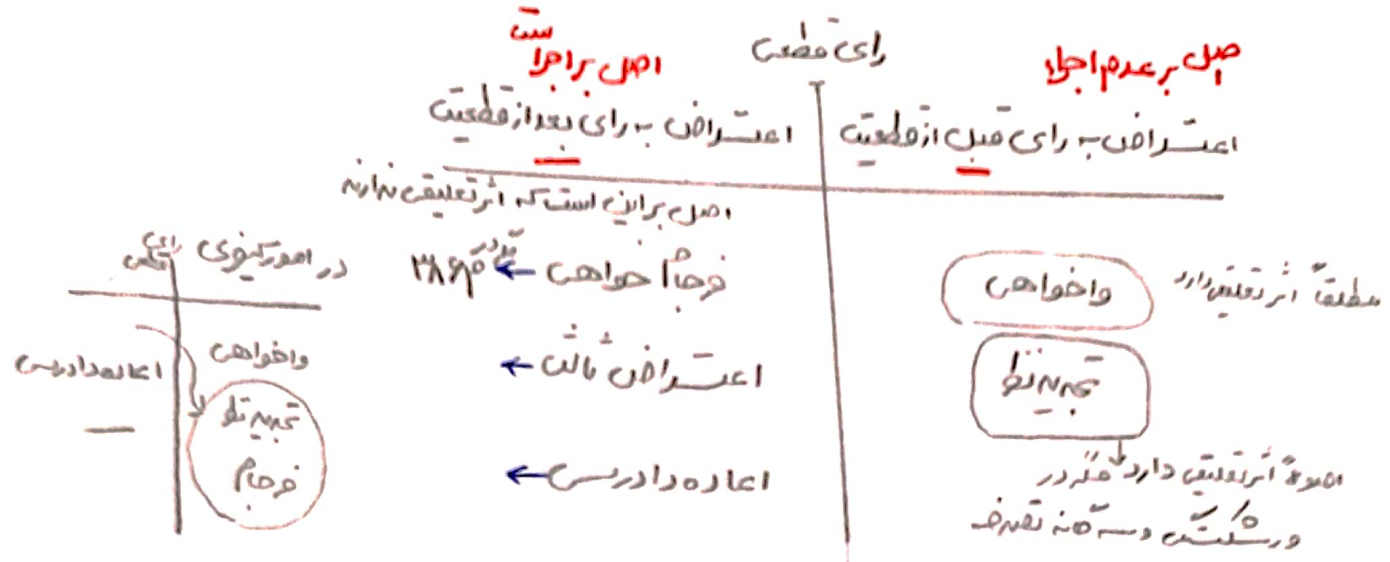 رای قطعی
اصل بر عدم اجرا
اعتراض به رای قبل از قطعیت
مطلقاً اثر تعلیقی دارد
واخواهی
تجدیدنظر
اصولاً اثر تعلیقی دارد مگر در
ورشکستگی و سه گانه تصرف
اصل بر اجراست
اعتراض به رای بعد از قطعیت
اصل بر این است که اثر تعلیقی ندارند
فرجام خواهی ← ۳۸۶
اعتراض ثالث ←
اعاده دادرسی ←
در امور کیفری
رای قطعی
واخواهی
تجدیدنظر
فرجام
اعاده دادرسی
—